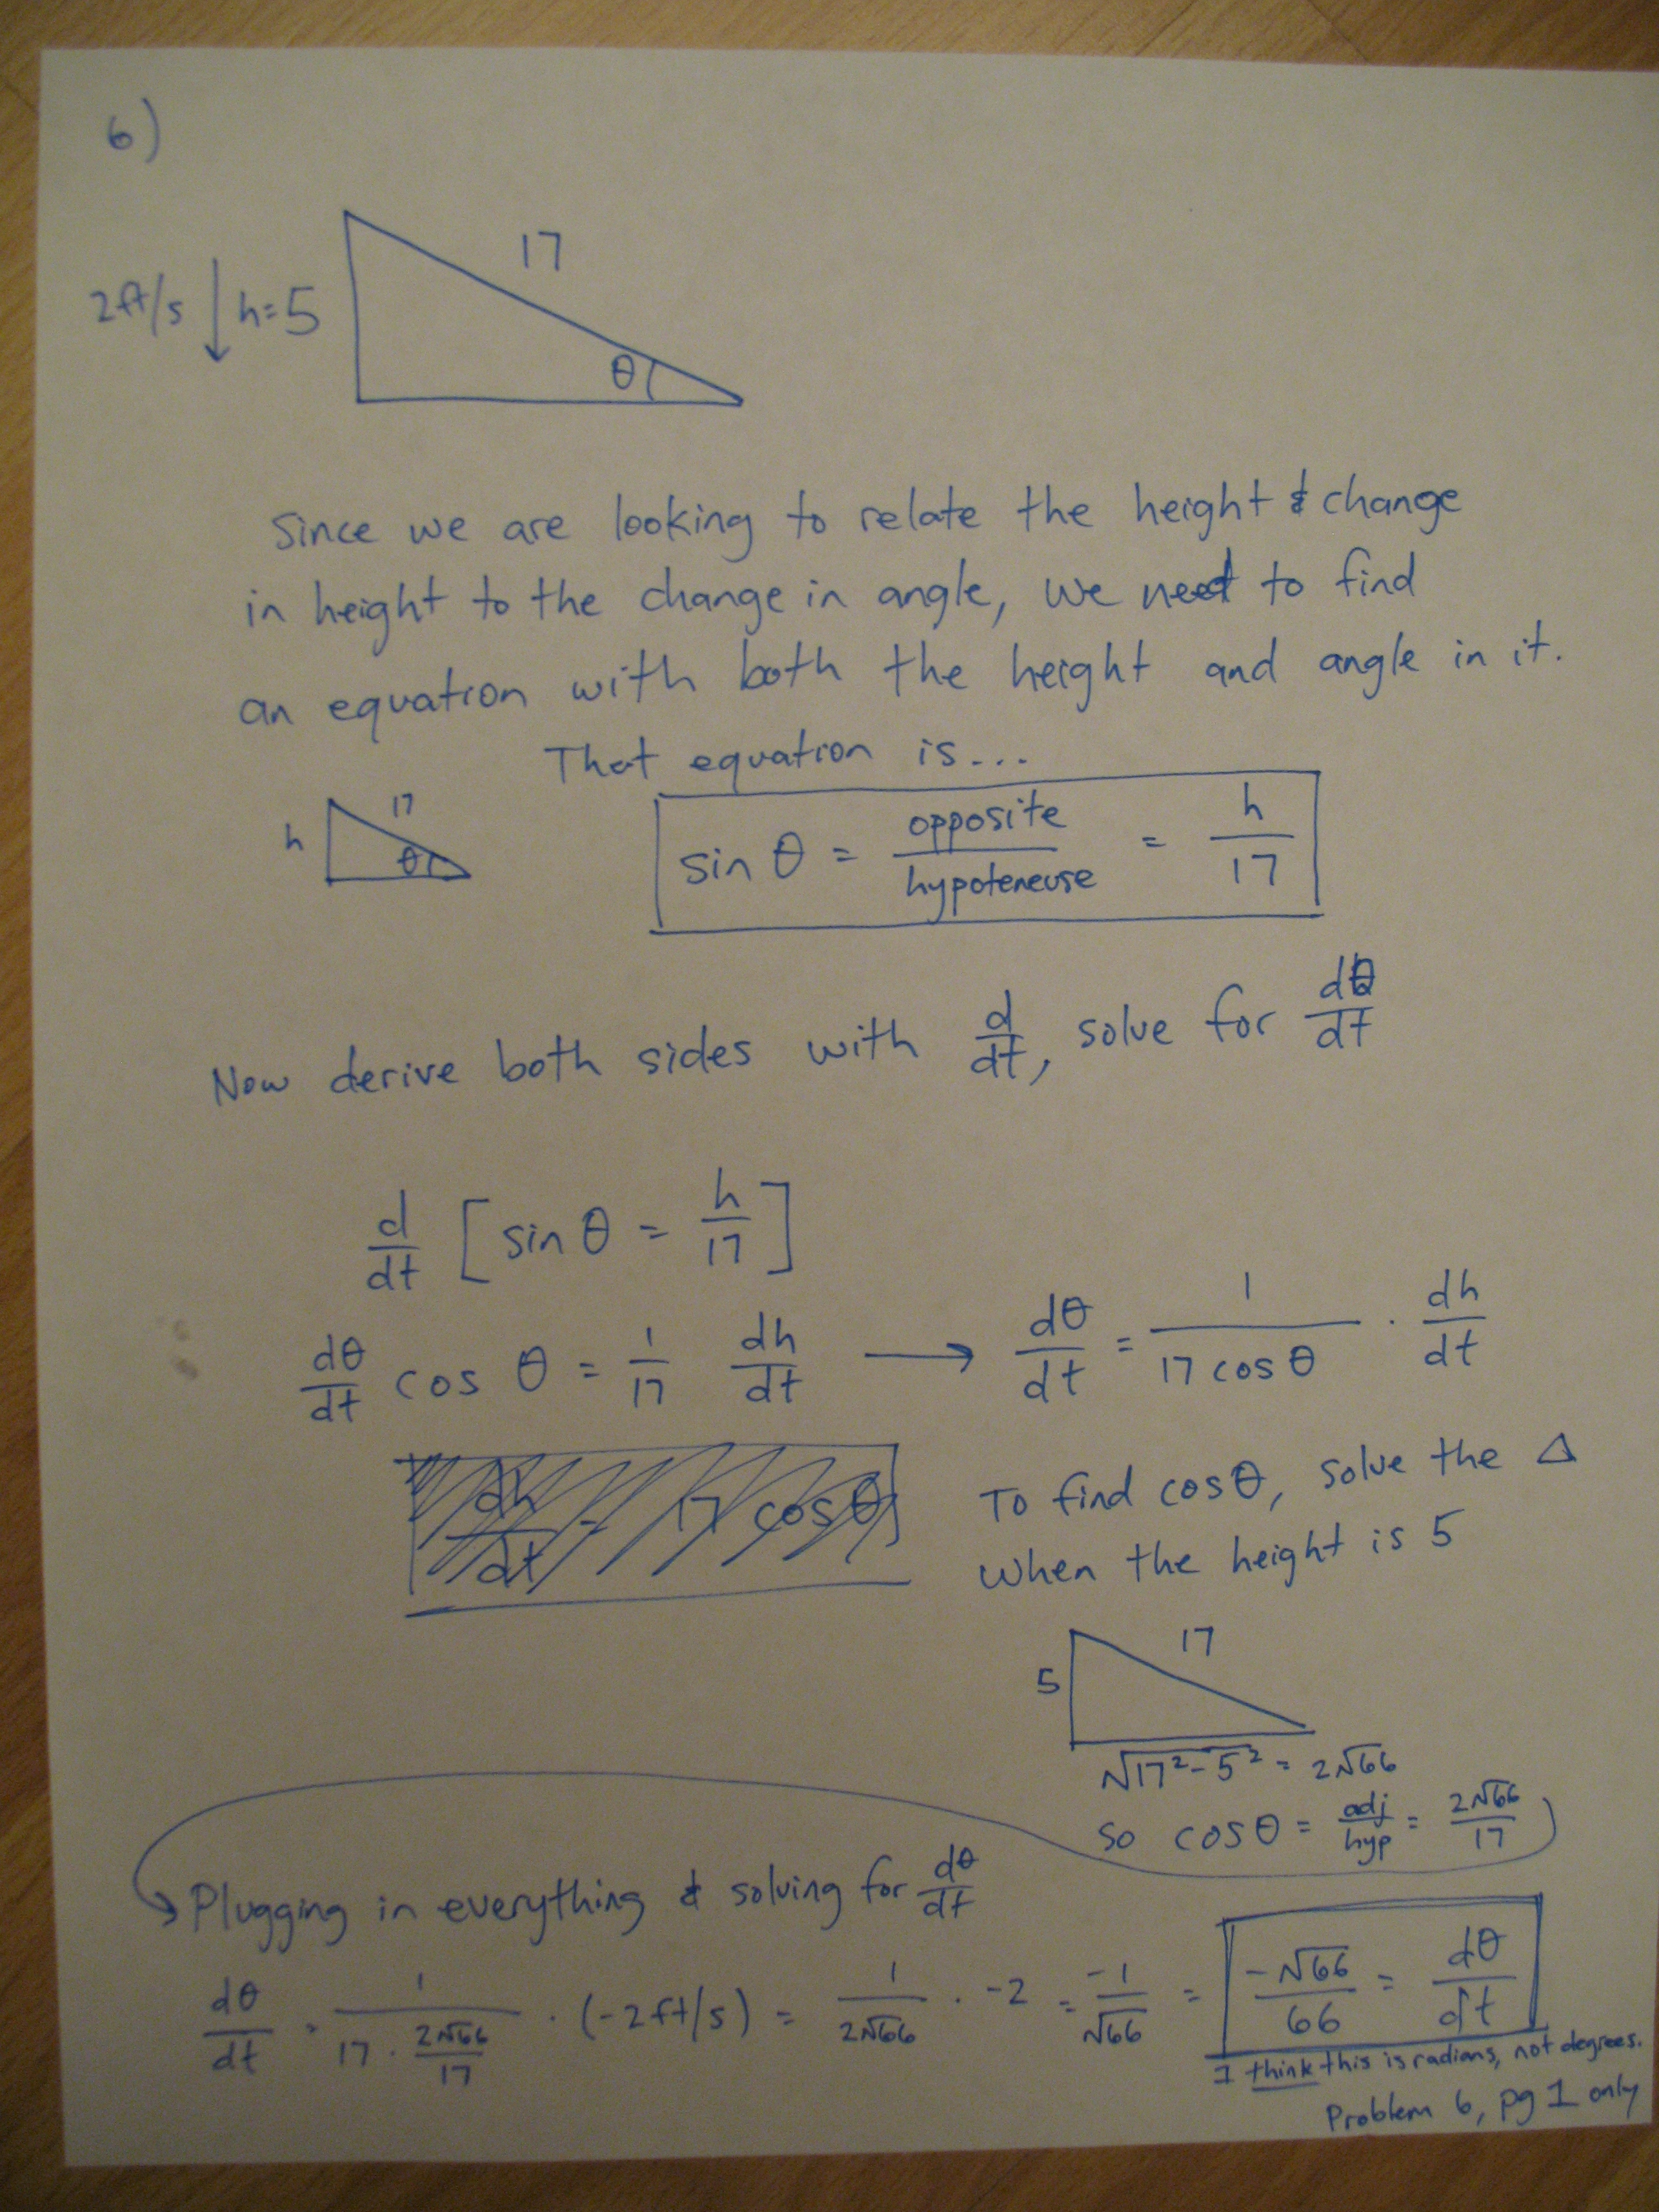 6)
17
2ft/s ↓ h=5
θ
Since we are looking to relate the height & change
in height to the change in angle, we need to find
an equation with both the height and angle in it.
That equation is...
17
h
θ
sin θ = opposite/hypoteneuse = h/17
Now derive both sides with d/dt, solve for dθ/dt
d/dt [sin θ = h/17]
dθ/dt cos θ = 1/17 dh/dt → dθ/dt = 1/(17 cos θ) · dh/dt
dh/dt = 17 cos θ
To find cos θ, solve the Δ
when the height is 5
17
5
√17²-5² = 2√66
so cos θ = adj/hyp = 2√66/17
Plugging in everything & solving for dθ/dt
dθ/dt = 1/(17 · 2√66/17) · (-2ft/s) = 1/2√66 · -2 = -1/√66 = -√66/66 = dθ/dt
I think this is radians, not degrees.
Problem 6, pg 1 only